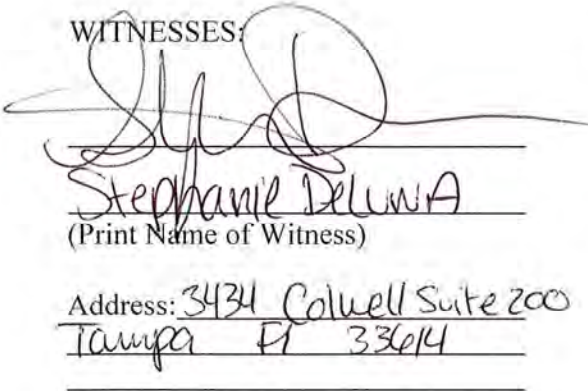 WITNESSES:
Stephanie DeLunA
(Print Name of Witness)
Address: 3434 Colwell Suite 200
Tampa Fl 33614